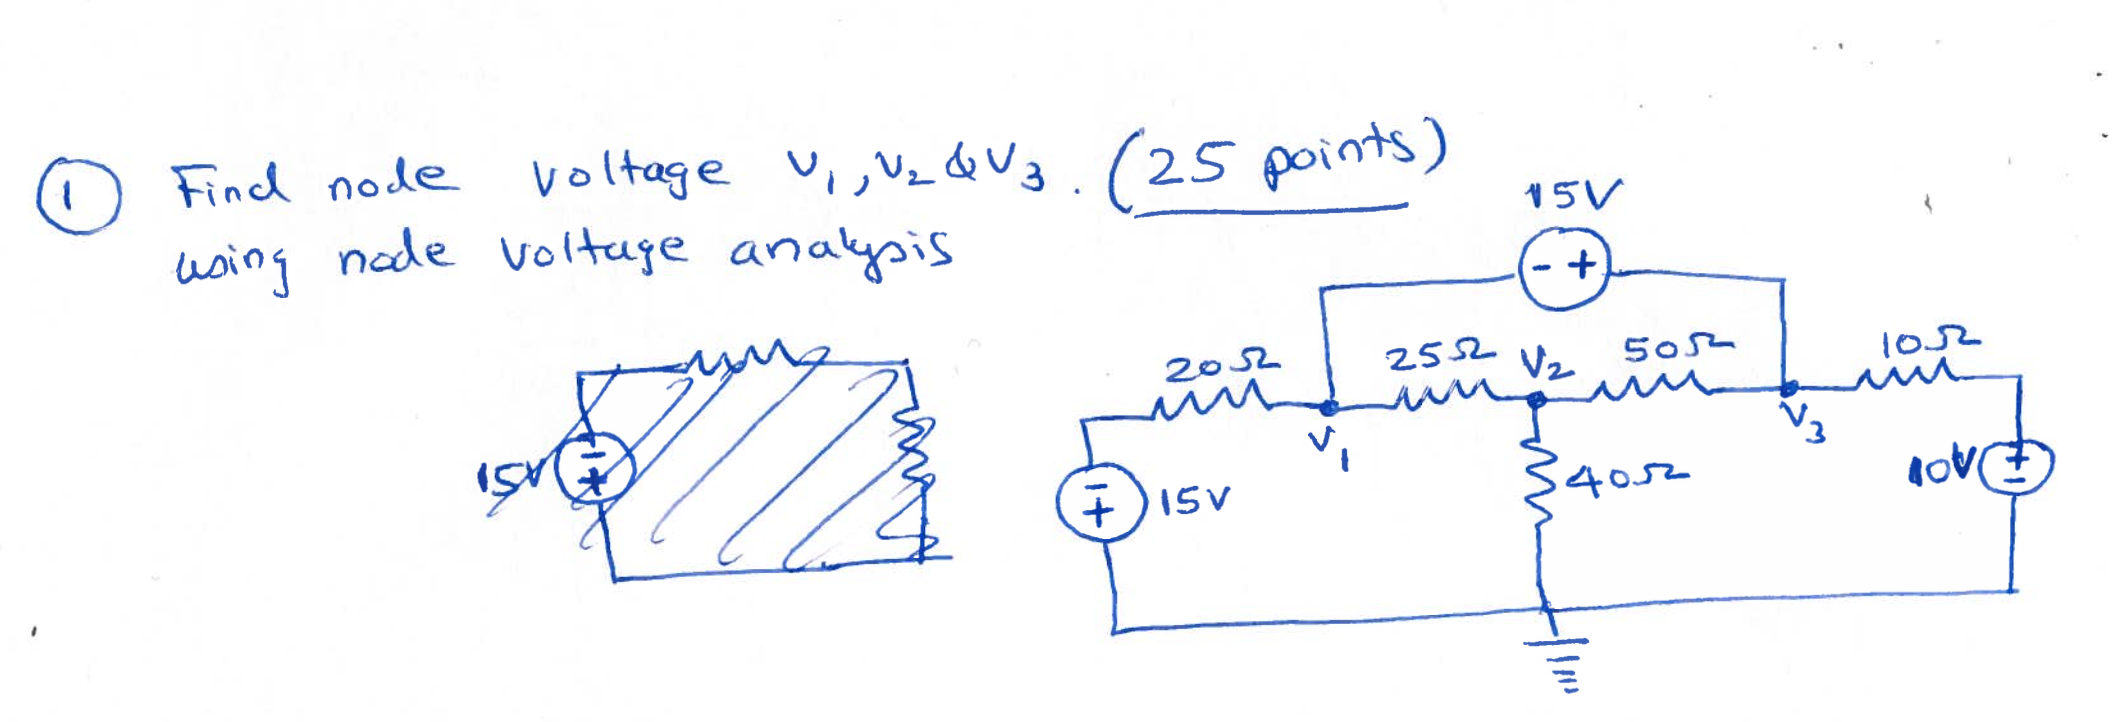 ① Find node voltage V₁, V₂ & V₃. (25 points)
using node voltage analysis
15V
20Ω 25Ω V₂ 50Ω 10Ω
V₁ V₃
15V - + 15V 40Ω 10V
- +
- +
+ -